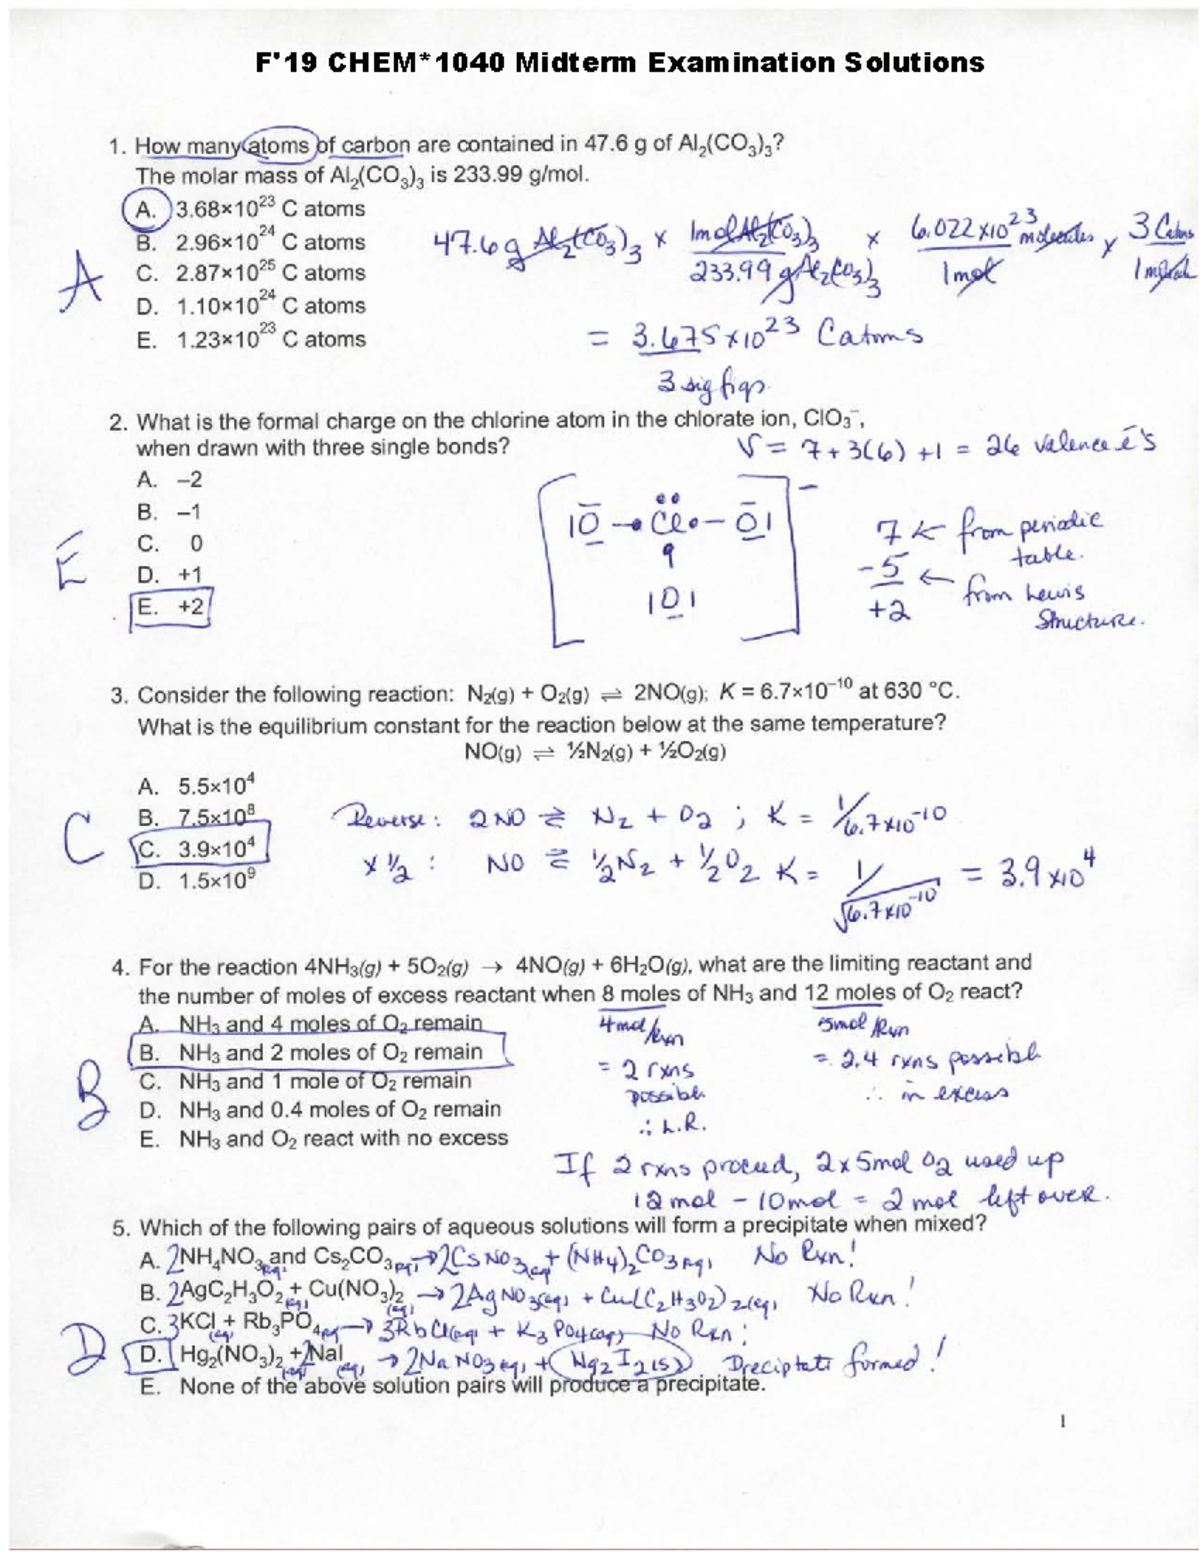 F'19 CHEM*1040 Midterm Examination Solutions
1. How many atoms of carbon are contained in 47.6 g of Al₂(CO₃)₃?
The molar mass of Al₂(CO₃)₃ is 233.99 g/mol.
A. 3.68×10²³ C atoms
B. 2.96×10²⁴ C atoms
C. 2.87×10²⁵ C atoms
D. 1.10×10²⁴ C atoms
E. 1.23×10²³ C atoms
A
47.6g Al₂(CO₃)₃ × 1mol Al₂(CO₃)₃ × 6.022×10²³ molecules × 3 C atoms
233.99 g Al₂(CO₃)₃ 1mol 1
= 3.675×10²³ C atoms
3 sig figs.
2. What is the formal charge on the chlorine atom in the chlorate ion, ClO₃⁻,
when drawn with three single bonds?
V = 7+3(6)+1 = 26 valence e⁻'s
A. −2
B. −1
C. 0
D. +1
E. +2
E
O Cl O
O
−
7 ← from periodic table.
−5 ← from Lewis Structure.
+2
3. Consider the following reaction: N₂(g) + O₂(g) ⇌ 2NO(g); K = 6.7×10⁻¹⁰ at 630 °C.
What is the equilibrium constant for the reaction below at the same temperature?
NO(g) ⇌ ½N₂(g) + ½O₂(g)
A. 5.5×10⁴
B. 7.5×10⁸
C. 3.9×10⁴
D. 1.5×10⁹
C
Reverse: 2NO ⇌ N₂ + O₂ ; K = 1/6.7×10⁻¹⁰
× ½ : NO ⇌ ½N₂ + ½O₂ K = 1/√6.7×10⁻¹⁰ = 3.9×10⁴
4. For the reaction 4NH₃(g) + 5O₂(g) → 4NO(g) + 6H₂O(g), what are the limiting reactant and
the number of moles of excess reactant when 8 moles of NH₃ and 12 moles of O₂ react?
A. NH₃ and 4 moles of O₂ remain
B. NH₃ and 2 moles of O₂ remain
C. NH₃ and 1 mole of O₂ remain
D. NH₃ and 0.4 moles of O₂ remain
E. NH₃ and O₂ react with no excess
B
4mol/rxn
= 2 rxns
possible
∴ L.R.
5mol/rxn
= 2.4 rxns possible
∴ in excess
If 2 rxns proceed, 2×5mol O₂ used up
12mol − 10mol = 2 mol left over.
5. Which of the following pairs of aqueous solutions will form a precipitate when mixed?
A. 2NH₄NO₃(aq) and Cs₂CO₃(aq) → 2CsNO₃(aq) + (NH₄)₂CO₃(aq) No Rxn!
B. 2AgC₂H₃O₂(aq) + Cu(NO₃)₂(aq) → 2AgNO₃(aq) + Cu(C₂H₃O₂)₂(aq) No Rxn!
C. 3KCl(aq) + Rb₃PO₄(aq) → 3RbCl(aq) + K₃PO₄(aq) No Rxn!
D. Hg₂(NO₃)₂(aq) + 2NaI(aq) → 2NaNO₃(aq) + Hg₂I₂(s) Precipitate formed!
E. None of the above solution pairs will produce a precipitate.
D
1